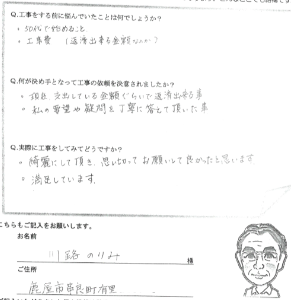 Q.工事をする前に悩んでいたことは何でしょうか?
・50代で始めること
・工事費 (返済出来る金額なのか?
Q.何が決め手となって工事の依頼を決意されましたか?
・現在 支出している金額ぐらいで返済出来る事
・私の要望や疑問を丁寧に答えて頂いた事
Q.実際に工事をしてみてどうですか?
・綺麗にして頂き、思い切ってお願いして良かったと思います
・満足しています。
こちらもご記入をお願いします。
お名前
川路 のりみ 様
ご住所
鹿屋市串良町有里